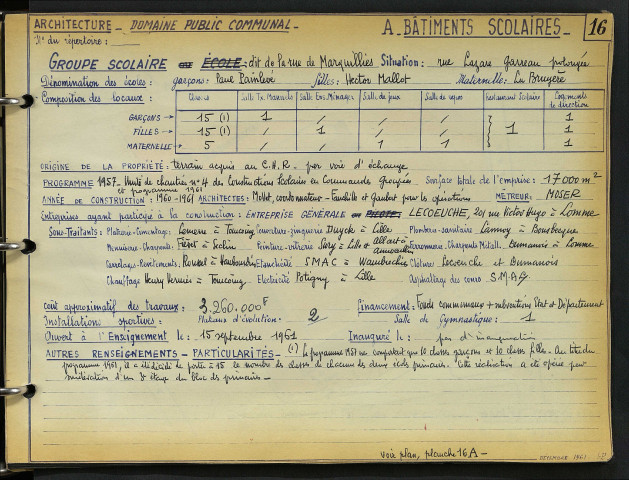 ARCHITECTURE - DOMAINE PUBLIC COMMUNAL - A - BÂTIMENTS SCOLAIRES - 16
N° du répertoire :
GROUPE SCOLAIRE ou ÉCOLE : dit de la rue de Marquillies Situation : rue Lazare Garreau prolongée
Dénomination des écoles : garçons : Paul Painlevé filles : Hector Mallot Maternelle : La Bruyère
Composition des locaux : Classes Salle Tx. Manuels Salle Ens. Ménager Salle de jeux Salle de repos Restaurant Scolaire Logements de direction
GARÇONS → 15 (1) 1 / / / 1
FILLES → 15 (1) / 1 / / 1 1
MATERNELLE → 5 / / 1 1 1
ORIGINE DE LA PROPRIÉTÉ : terrain acquis au C.H.R. par voie d'échange
PROGRAMME 1957 - Unité de chantier n° 4 des Constructions Scolaires en Commandes Groupées. Surface totale de l'emprise : 17000 m²
et programme 1961
ANNÉE DE CONSTRUCTION : 1960-1961 ARCHITECTES : Mollet, coordonnateur - et Gaubert pour les opérations MÉTREUR : MOSER
Entreprises ayant participé à la construction : ENTREPRISE GÉNÉRALE ou PILOTE : LECOEUCHE, 201 rue Victor Hugo à Lomme
Sous-Traitants : Plâtrerie-Cimentage : à Tourcoing Couverture-zinguerie Duyck à Lille Plomberie-sanitaire Lannoy à Bourbecque
Menuiserie-Charpente : à Seclin Peinture-vitrerie à Lille Ferronnerie-Charpente Métall. Dumanois à Lomme
Carrelages-Revêtements, Roussel à Haubourdin Etanchéité SMAC à Wambrechies Clôtures Lecoeuche et Dumanois
Chauffage Henry à Tourcoing Electricité Potigny à Lille Asphaltage des cours S.M.A.C
Coût approximatif des travaux : 3.260.000 F Financement : Fonds communaux + subventions Etat et Département
Installations sportives : Plateaux d'évolution : 2 Salle de Gymnastique : 1
Ouvert à l'Enseignement le : 15 septembre 1961 Inauguré le : pas d'inauguration
AUTRES RENSEIGNEMENTS - PARTICULARITÉS - (1) Le programme 1957 ne comportait que 10 classes garçons et 10 classes filles. Au titre du
programme 1961, il a été décidé de porter à 15 le nombre des classes de chacune des deux écoles primaires. Cette réalisation a été opérée par
surélévation d'un 2e étage du bloc des primaires -
Voir plan, planche 16A -
DÉCEMBRE 1961